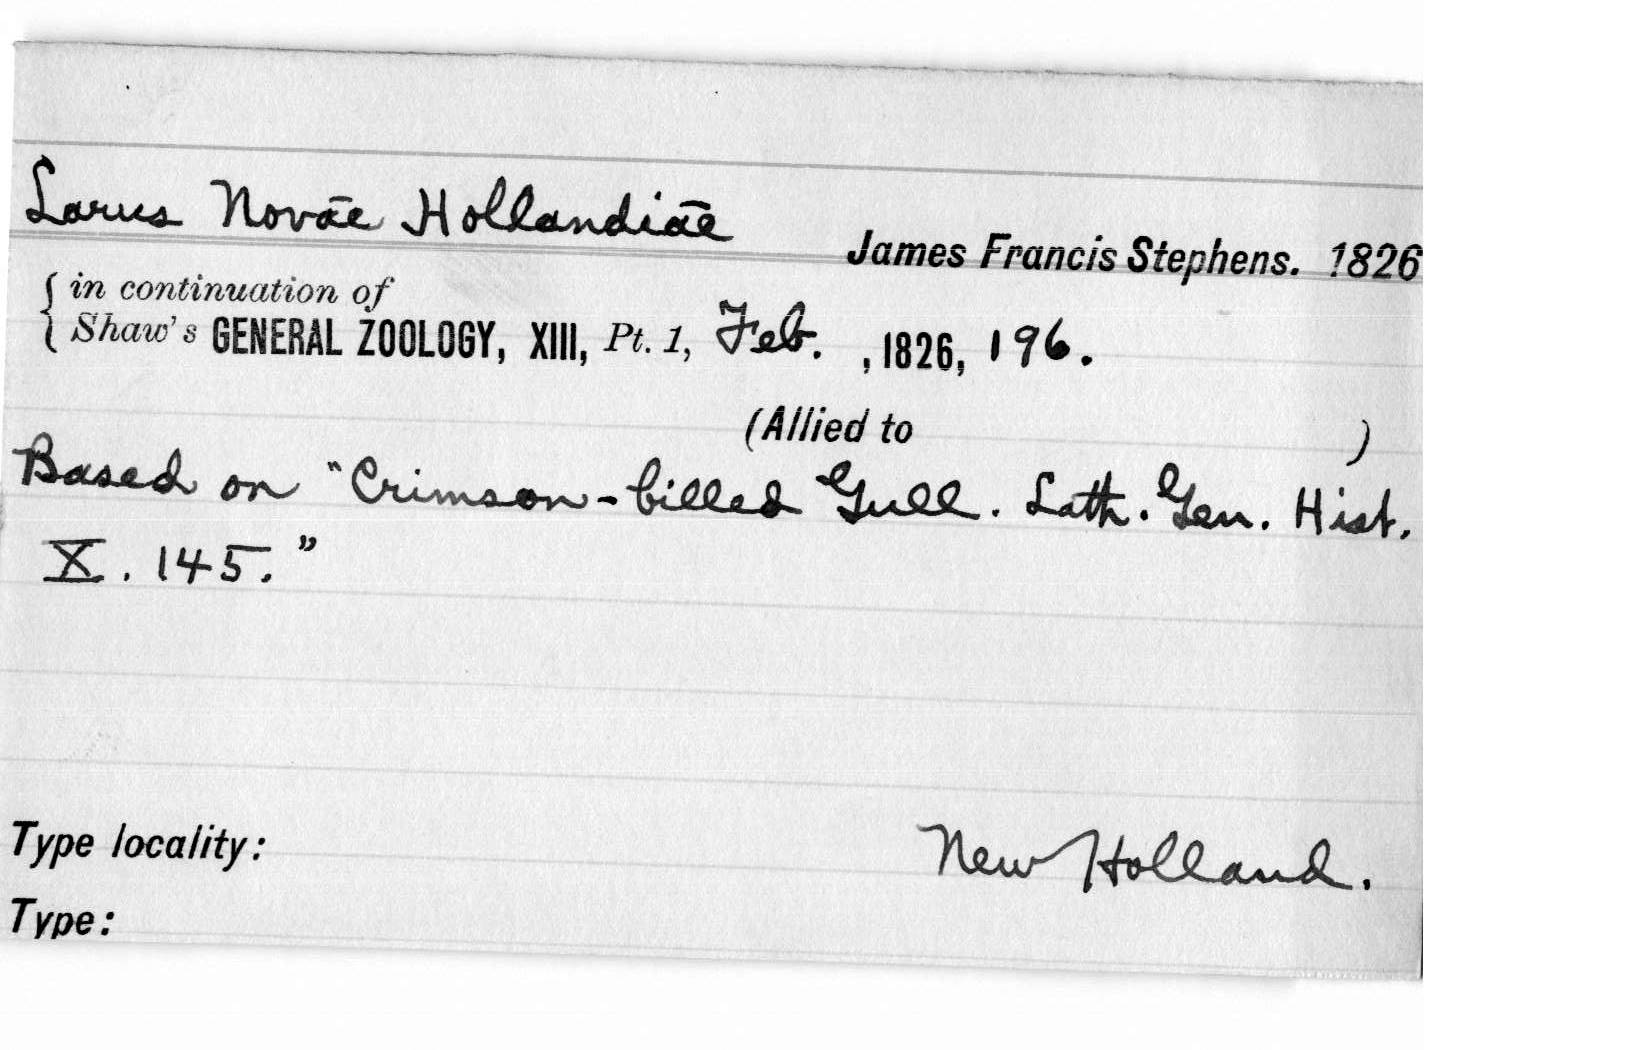 Larus Novāe Hollandiāe
James Francis Stephens. 1826
{ in continuation of
Shaw's GENERAL ZOOLOGY, XIII, Pt. 1, Feb. , 1826, 196.
(Allied to )
Based on "Crimson-billed Gull. Lath. Gen. Hist.
X. 145."
Type locality: New Holland.
Type: